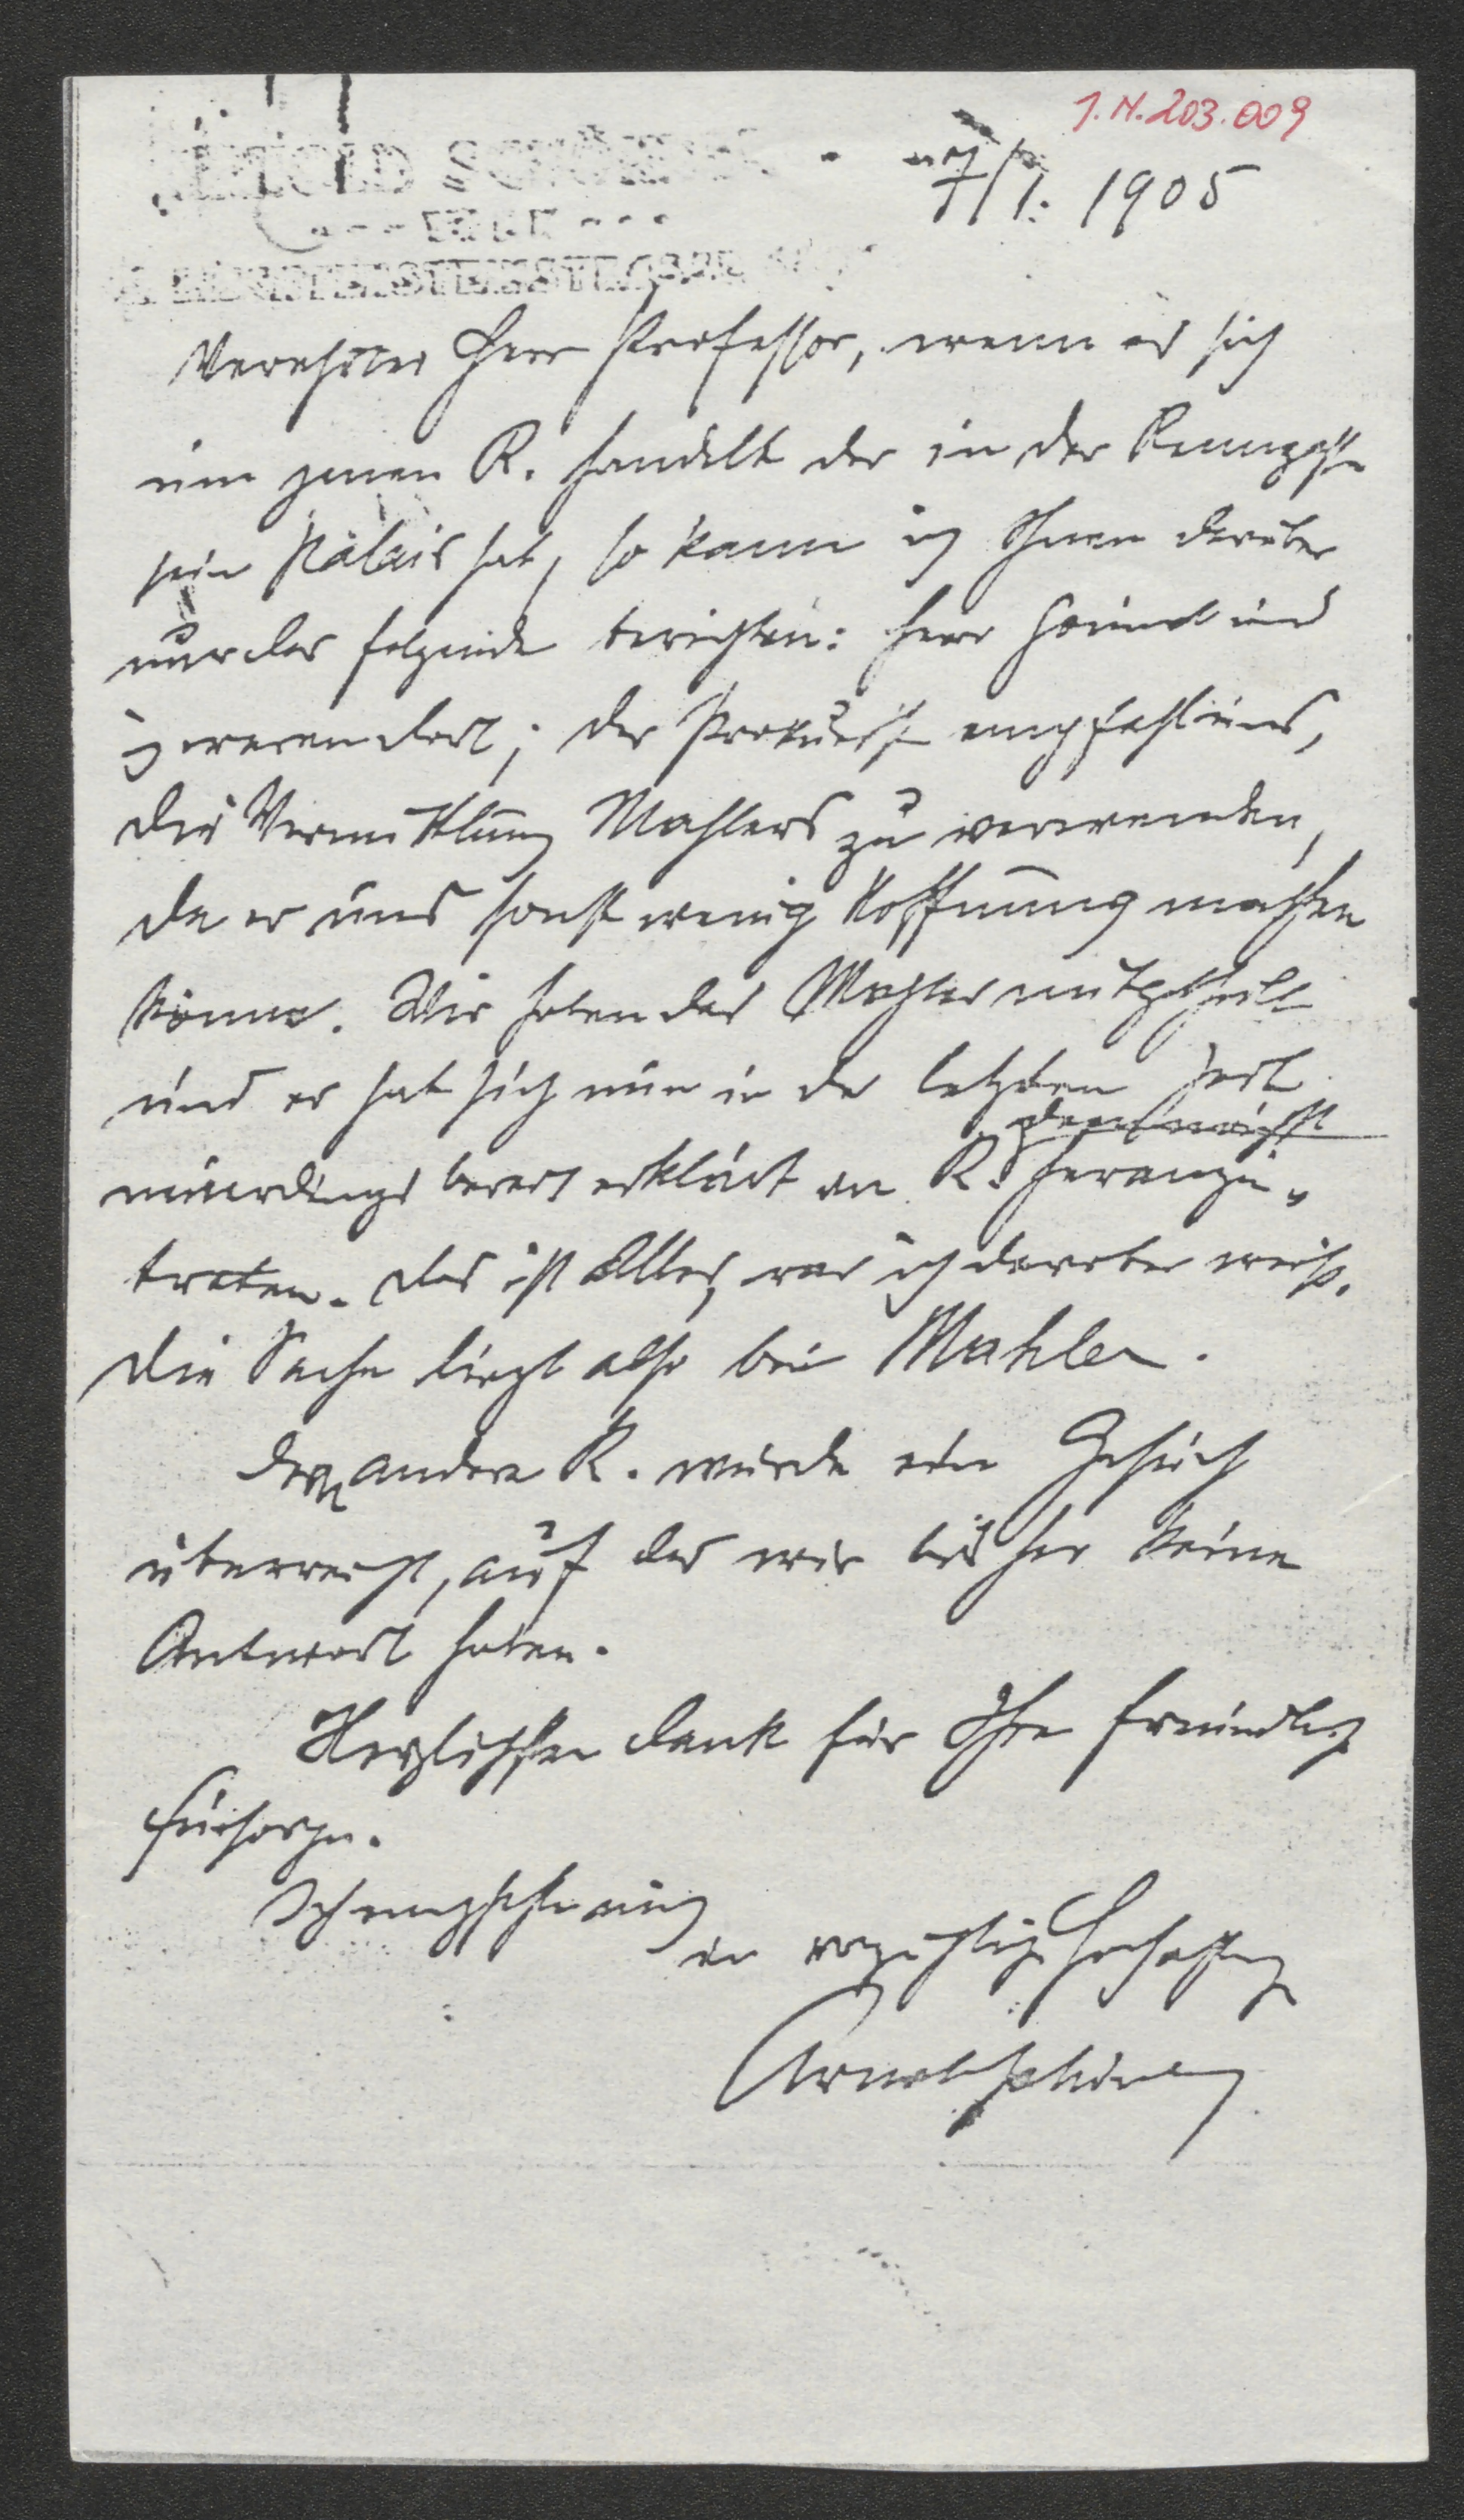 I.N. 203.009
ARNOLD SCHÖNBERG
WIEN
LIECHTENSTEINSTRASSE
7/1. 1905
Verehrter Herr Professor, wenn es sich
um jenen R. handelt der in der Renngasse
sein Palais hat, so kann ich Ihnen darüber
nur das folgende berichten: Herr und
ich waren dort; der Prokurist empfahl uns,
die Vermittlung Mahlers zu verwenden,
da er uns sonst wenig Hoffnung machen
könne. Wir haben das Mahler mitgetheilt
und er hat sich nun in der letzten Zeit
demnächst
neuerdings bereit erklärt an R. heranzu-
treten. Das ist Alles, was ich darüber weiß.
Die Sache liegt also bei Mahler.
Dem andern R. wurde ein Gesuch
überreicht, auf das wir bisher keine
Antwort haben.
Herzlichen Dank für Ihre freundliche
Fürsorge.
in vorzüglicher Hochachtung
Arnold Schönberg